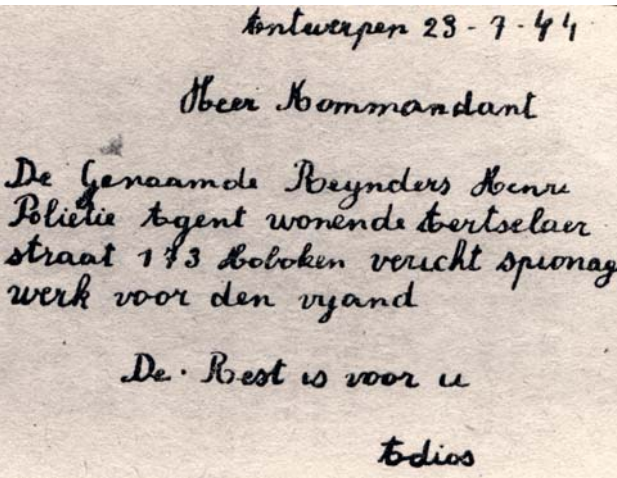 Antwerpen 23-7-44
Heer Kommandant
De Genaamde Reynders Henri
Polietie Agent wonende Aertselaer
straat 173 Hoboken vericht spionag
werk voor den vyand
De. Rest is voor u
Adios